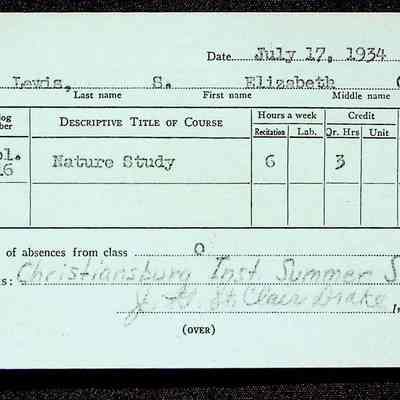 Date July 17, 1934
Lewis, S. Elizabeth
Last name First name Middle name
DESCRIPTIVE TITLE OF COURSE Hours a week Credit
Recitation Lab. Qr. Hrs Unit
Nature Study 6 3
of absences from class 0
s: Christiansburg Inst Summer S
J. H. St Clair Drake
(OVER)